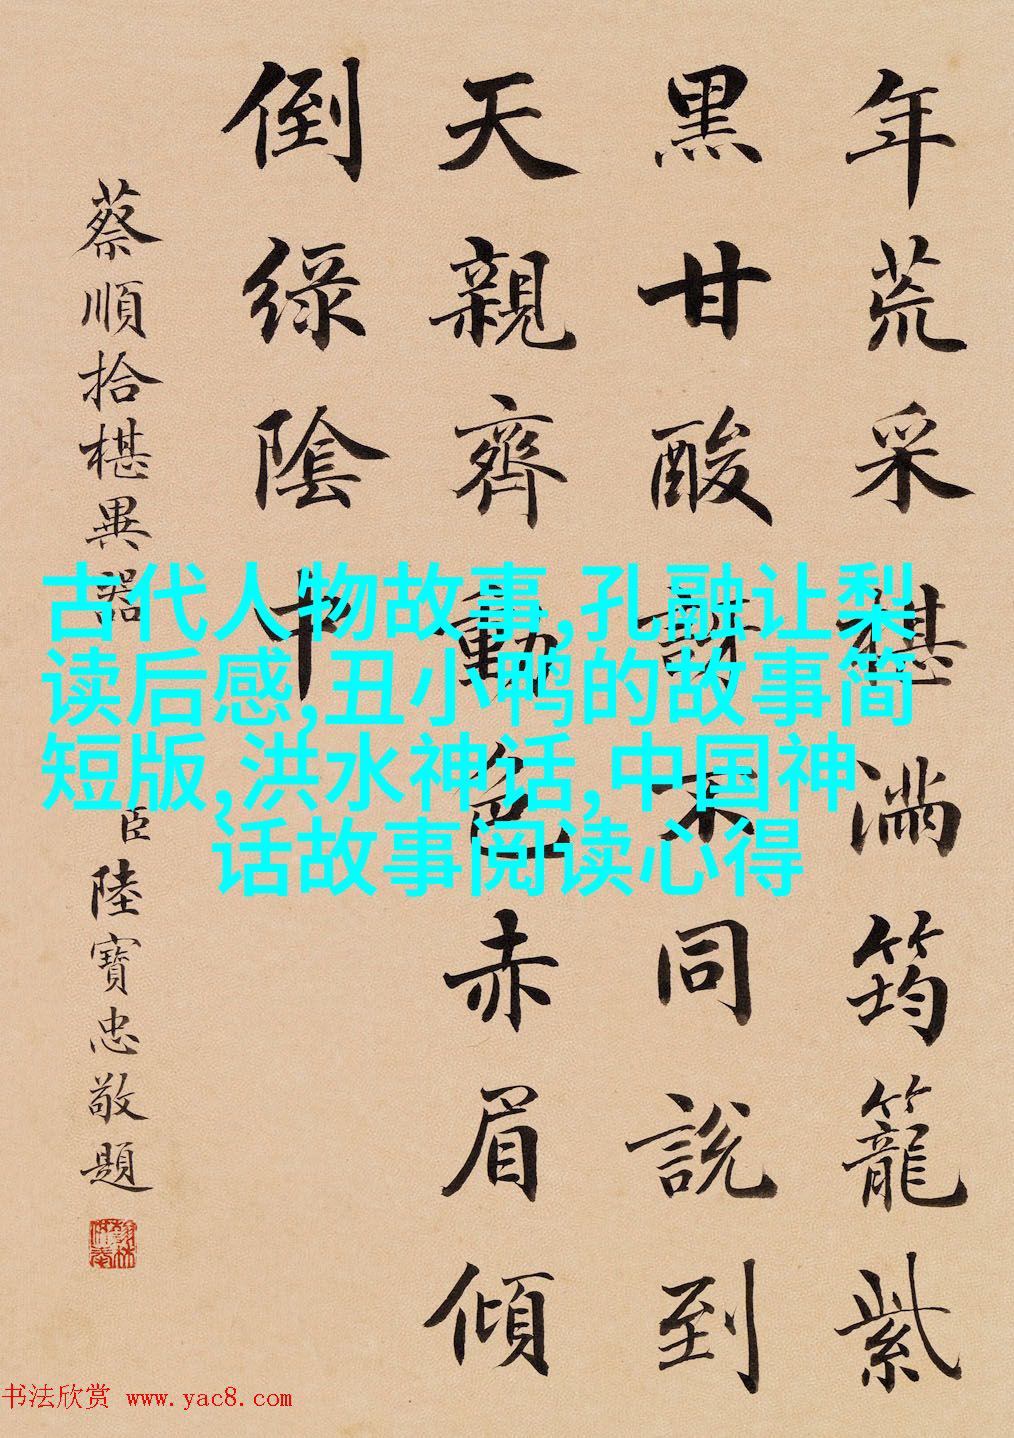 年荒采椹滿筠籠紫
黑甘酸不同說到
天親齊動色赤眉傾
倒綠陰中
蔡順拾椹異器
臣陸寶忠敬題
古代人物故事,孔融让梨
读后感,丑小鸭的故事简
短版,洪水神话,中国神
话故事阅读心得
书法欣赏 www.yac8.com